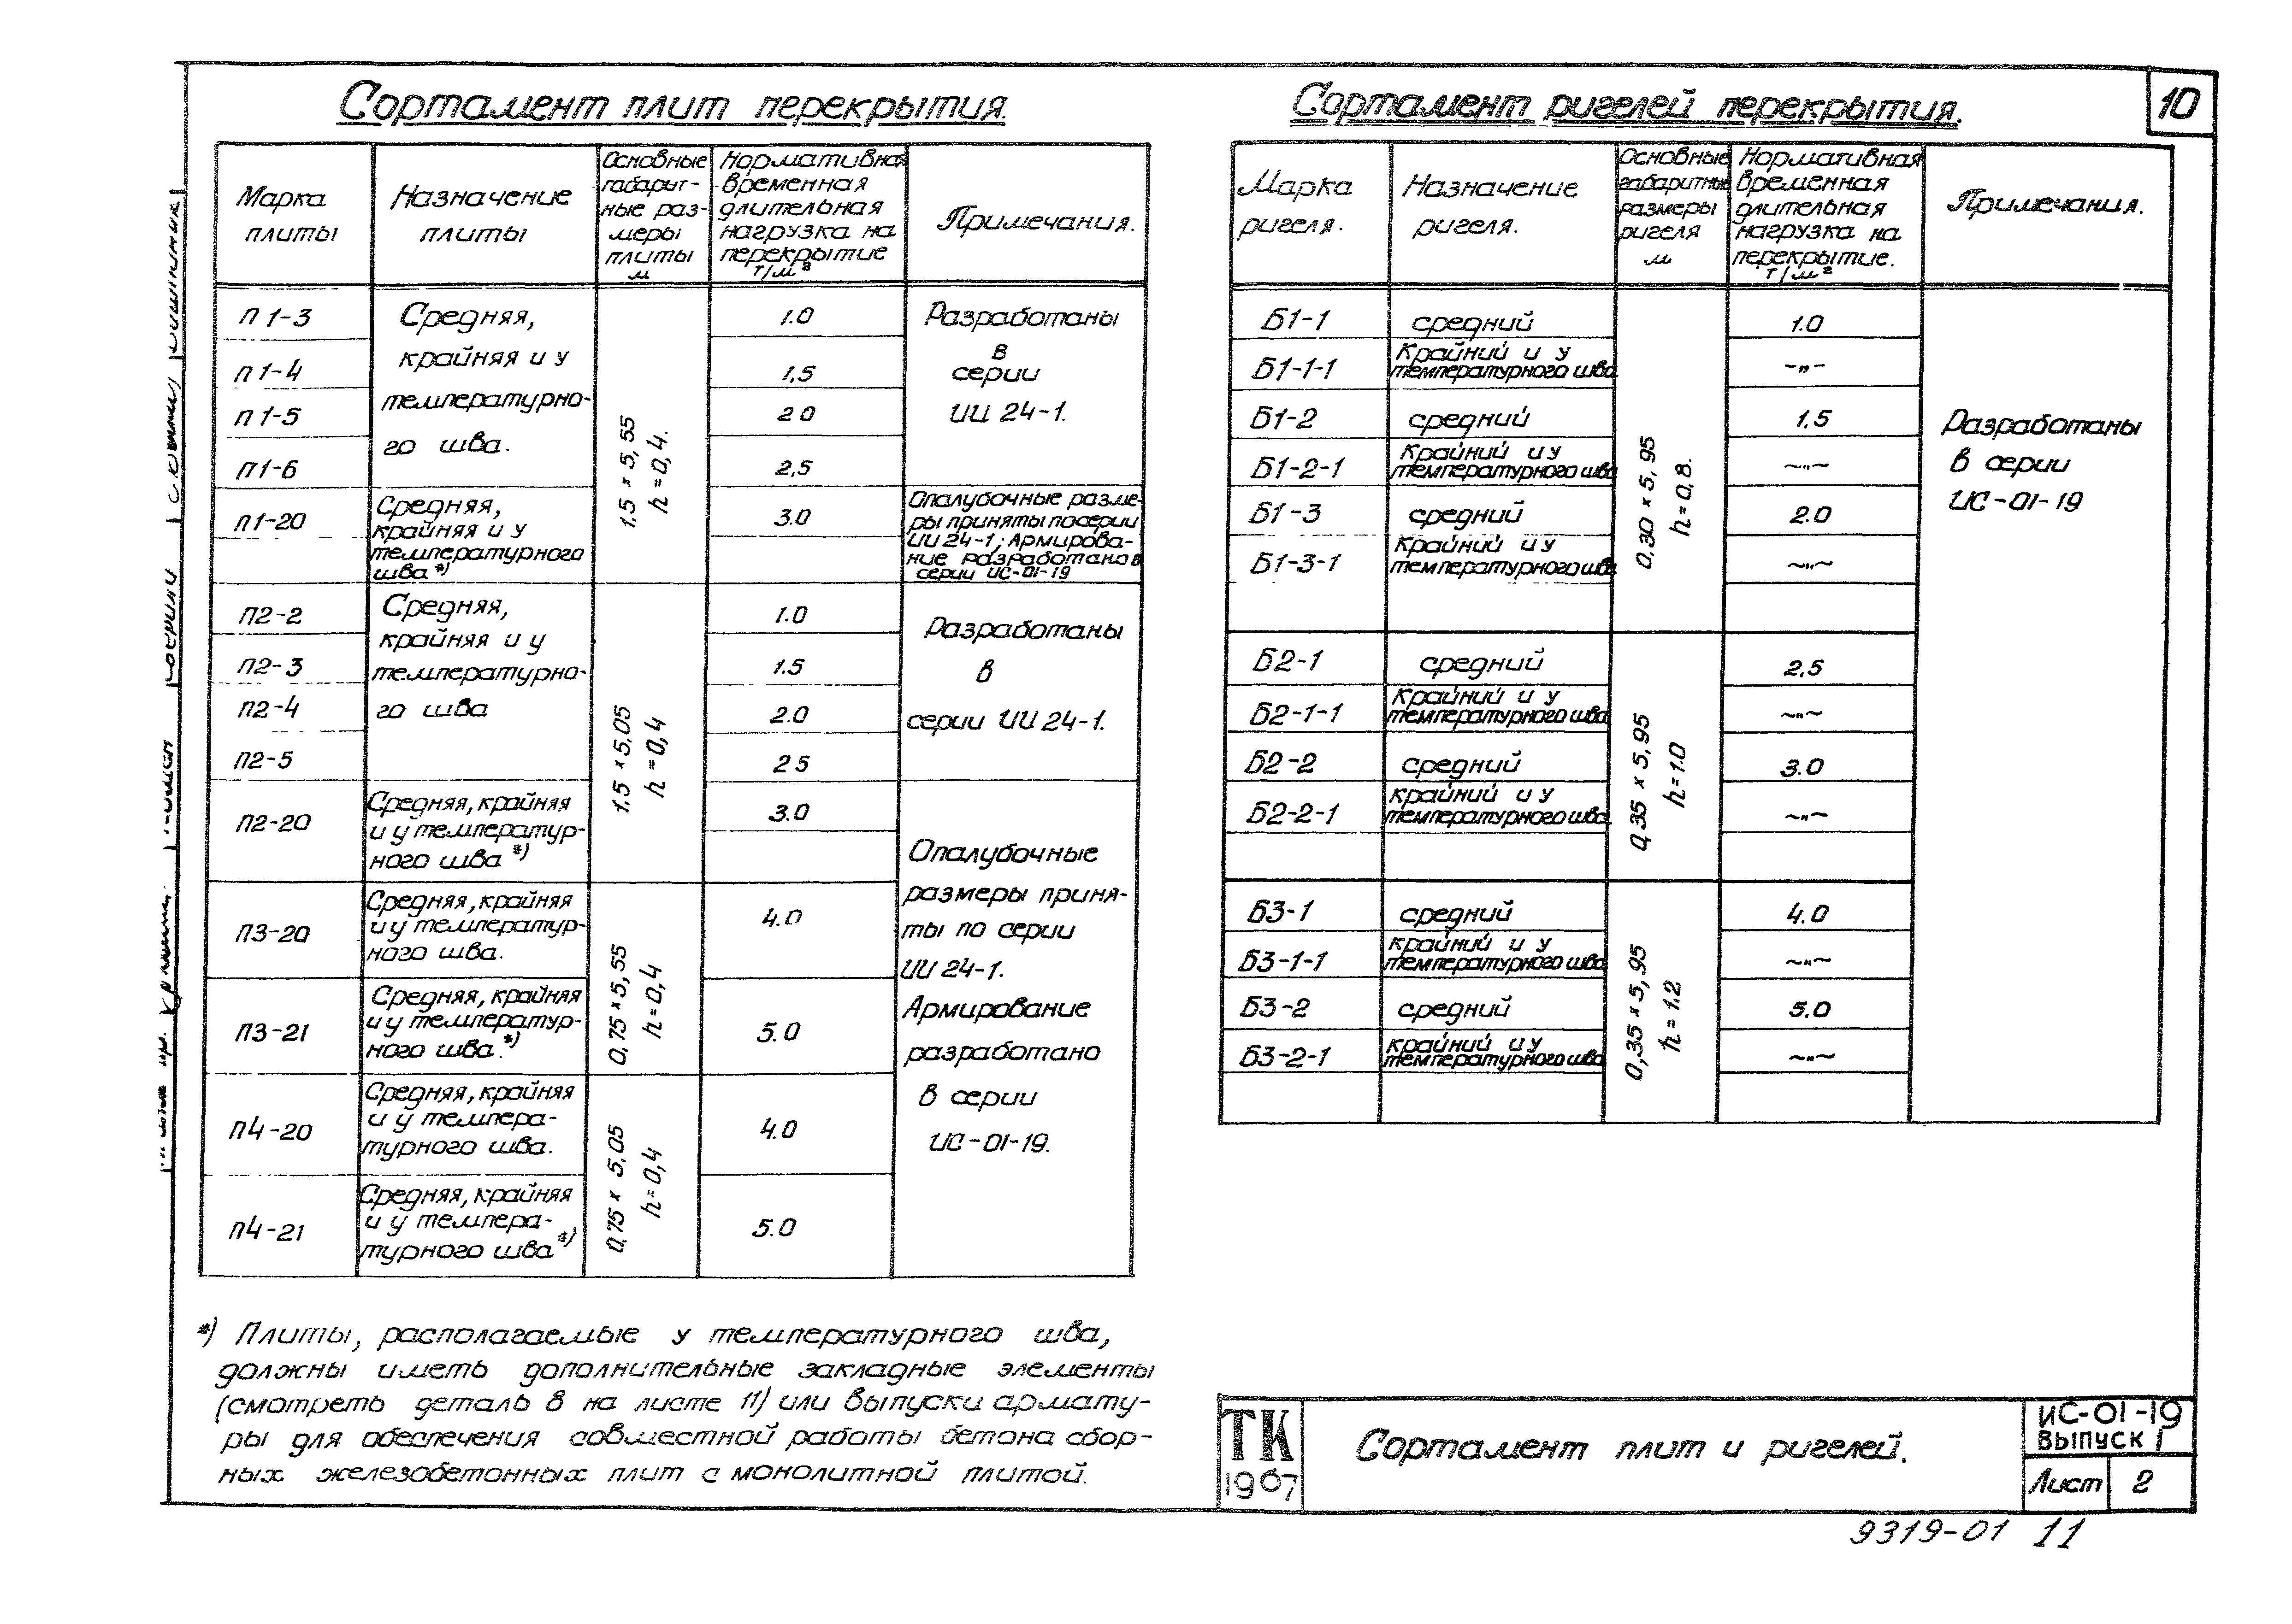 10
Сортамент плит перекрытия.
Марка плиты
Назначение плиты
Основные габарит-
ные раз-
меры
плиты
м
Нормативная
временная
длительная
нагрузка на
перекрытие
т/м²
Примечания.
П1-3
Средняя,
крайняя и у
температурно-
го шва.
1,5 × 5,55
h=0,4.
1.0
Разработаны
в
серии
ИИ 24-1.
П1-4
1,5
П1-5
2 0
П1-6
2,5
П1-20
Средняя,
крайняя и у
температурного
шва *)
3.0
Опалубочные разме-
ры приняты по серии
ИИ 24-1; Армирова-
ние разработано в
серии ИС-01-19
П2-2
Средняя,
крайняя и у
температурно-
го шва
1,5 × 5,05
h=0,4
1.0
Разработаны
в
серии ИИ 24-1.
П2-3
1.5
П2-4
2.0
П2-5
2 5
П2-20
Средняя, крайняя
и у температур-
ного шва *)
3.0
Опалубочные
размеры приня-
ты по серии
ИИ 24-1.
Армирование
разработано
в серии
ИС-01-19.
П3-20
Средняя, крайняя
и у температур-
ного шва.
0,75 × 5,55
h=0,4
4.0
П3-21
Средняя, крайняя
и у температур-
ного шва. *)
5.0
П4-20
Средняя, крайняя
и у темпера-
турного шва.
0,75 × 5,05
h=0,4
4.0
П4-21
Средняя, крайняя
и у темпера-
турного шва *)
5.0
*) Плиты, располагаемые у температурного шва,
должны иметь дополнительные закладные элементы
(смотреть деталь 8 на листе 11) или выпуски армату-
ры для обеспечения совместной работы бетона сбор-
ных железобетонных плит с монолитной плитой.
Сортамент ригелей перекрытия.
Марка ригеля.
Назначение ригеля.
Основные
габаритные
размеры
ригеля
м
Нормативная
временная
длительная
нагрузка на
перекрытие.
т/м²
Примечания.
Б1-1
средний
0,30 × 5,95
h=0,8.
1.0
Разработаны
в серии
ИС-01-19
Б1-1-1
Крайний и у
температурного шва
-"-
Б1-2
средний
1,5
Б1-2-1
Крайний и у
температурного шва
~"~
Б1-3
средний
2.0
Б1-3-1
Крайний и у
температурного шва
~"~
Б2-1
средний
0,35 × 5,95
h=1.0
2,5
Б2-1-1
Крайний и у
температурного шва
~"~
Б2-2
средний
3.0
Б2-2-1
крайний и у
температурного шва
~"~
Б3-1
средний
0,35 × 5,95
h=1.2
4.0
Б3-1-1
крайний и у
температурного шва
~"~
Б3-2
средний
5.0
Б3-2-1
крайний и у
температурного шва
~"~
ТК
1967
Сортамент плит и ригелей.
ИС-01-19
ВЫПУСК 1
Лист 2
9319-01 11